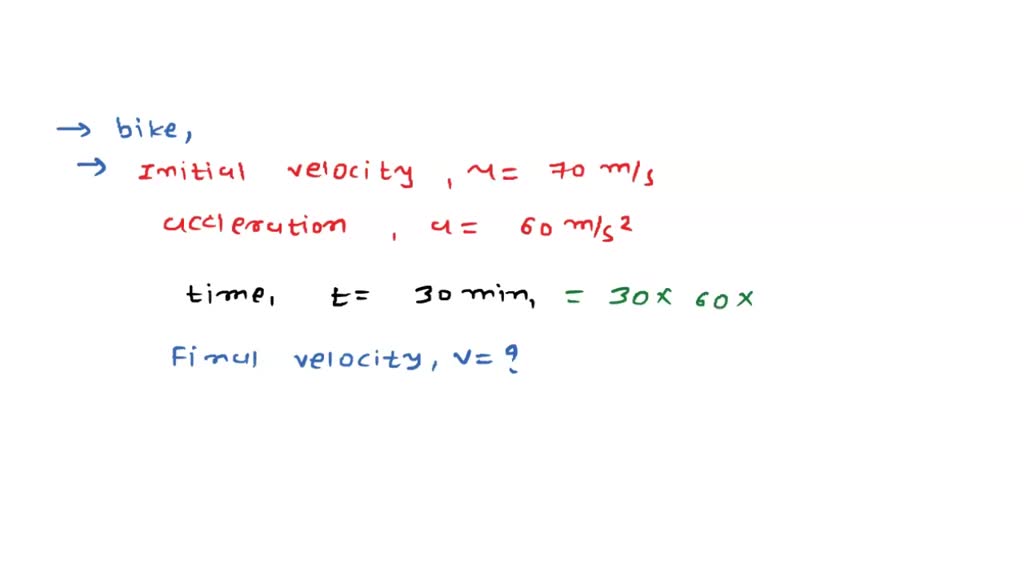 → bike,
→ Initial velocity, u = 70 m/s
accleration, a = 60 m/s²
time, t = 30 min, = 30 × 60 ×
Final velocity, v = ?